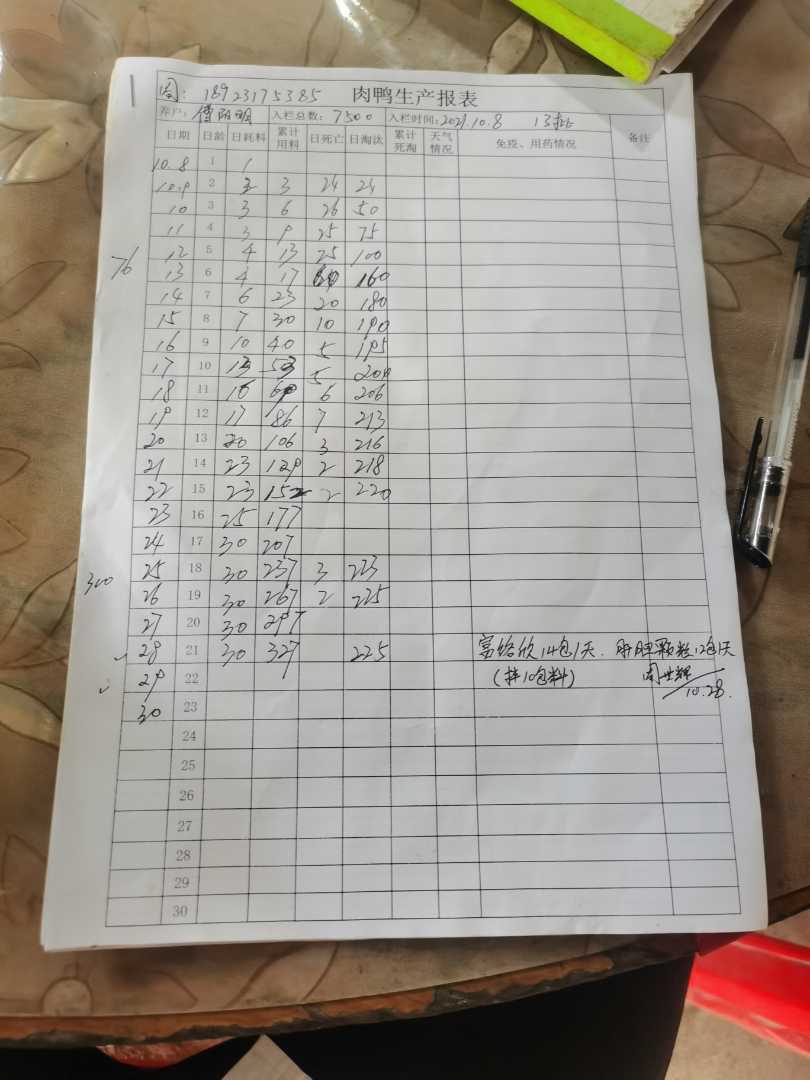 周: 18923175385 肉鸭生产报表
养户: 入栏总数: 7500 入栏时间: 2021.10.8 13批
日期 日龄 日耗料 累计用料 日死亡 日淘汰 累计死淘 天气情况 免疫、用药情况 备注
10.8 1 1
10.9 2 3 24 24
10 3 3 6 26 50
11 4 3 9 25 75
76
12 5 4 13 25 100
13 6 4 17 60 160
14 7 6 23 20 180
15 8 7 30 10 190
16 9 10 40 5 195
17 10 13 53 5 200
18 11 16 69 6 206
19 12 17 86 7 213
20 13 20 106 3 216
21 14 23 129 2 218
22 15 23 152 2 220
23 16 25 177
24 17 30 207
300
25 18 30 237 3 223
26 19 30 267 2 225
27 20 30 297
28 21 30 327 225 14包1天. 肝胆颗粒12包1天
29 22 (拌10包料) 周世辉
30 23 10.28.
24
25
26
27
28
29
30